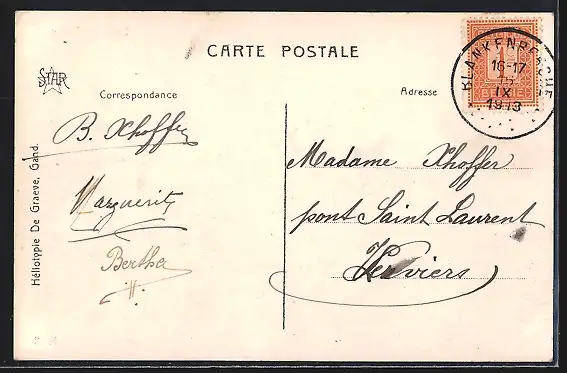 CARTE POSTALE
STAR
Correspondance
Adresse
BLANKENBERGHE
16-17
15
IX
1913
1
BELGIE
B. Xhoffer
Marguerite
Bertha
Madame Xhoffer
pont Saint Laurent
Verviers
Héliotypie De Graeve, Gand.